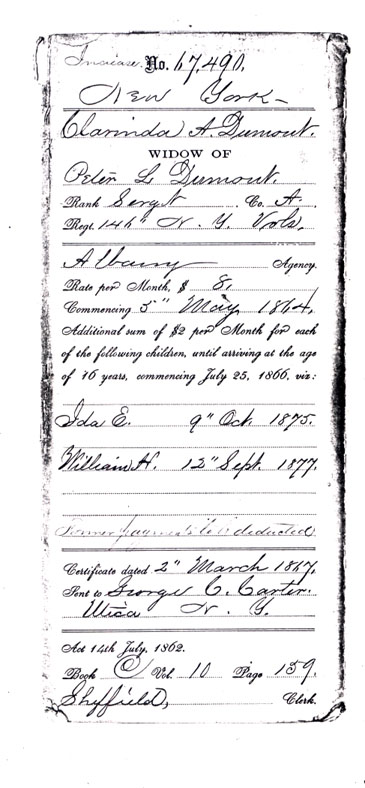 Increase. No. 67,490.
New York
Clarinda A. Dumont.
WIDOW OF
Peter L Dumont.
Rank Sergt Co. A.
Regt. 146" N. Y. Vols.
Albany Agency.
Rate per Month, $ 8.
Commencing 5" May 1864.
Additional sum of $2 per Month for each
of the following children, until arriving at the age
of 16 years, commencing July 25, 1866, viz:
Ida E. 9" Oct 1875.
William H. 12" Sept. 1877.
Former payments to be deducted
Certificate dated 2" March 1867.
Sent to George C. Carter.
Utica N. Y.
Act 14th July, 1862.
Book C Vol. 10 Page 159.
Sheffield, Clerk.